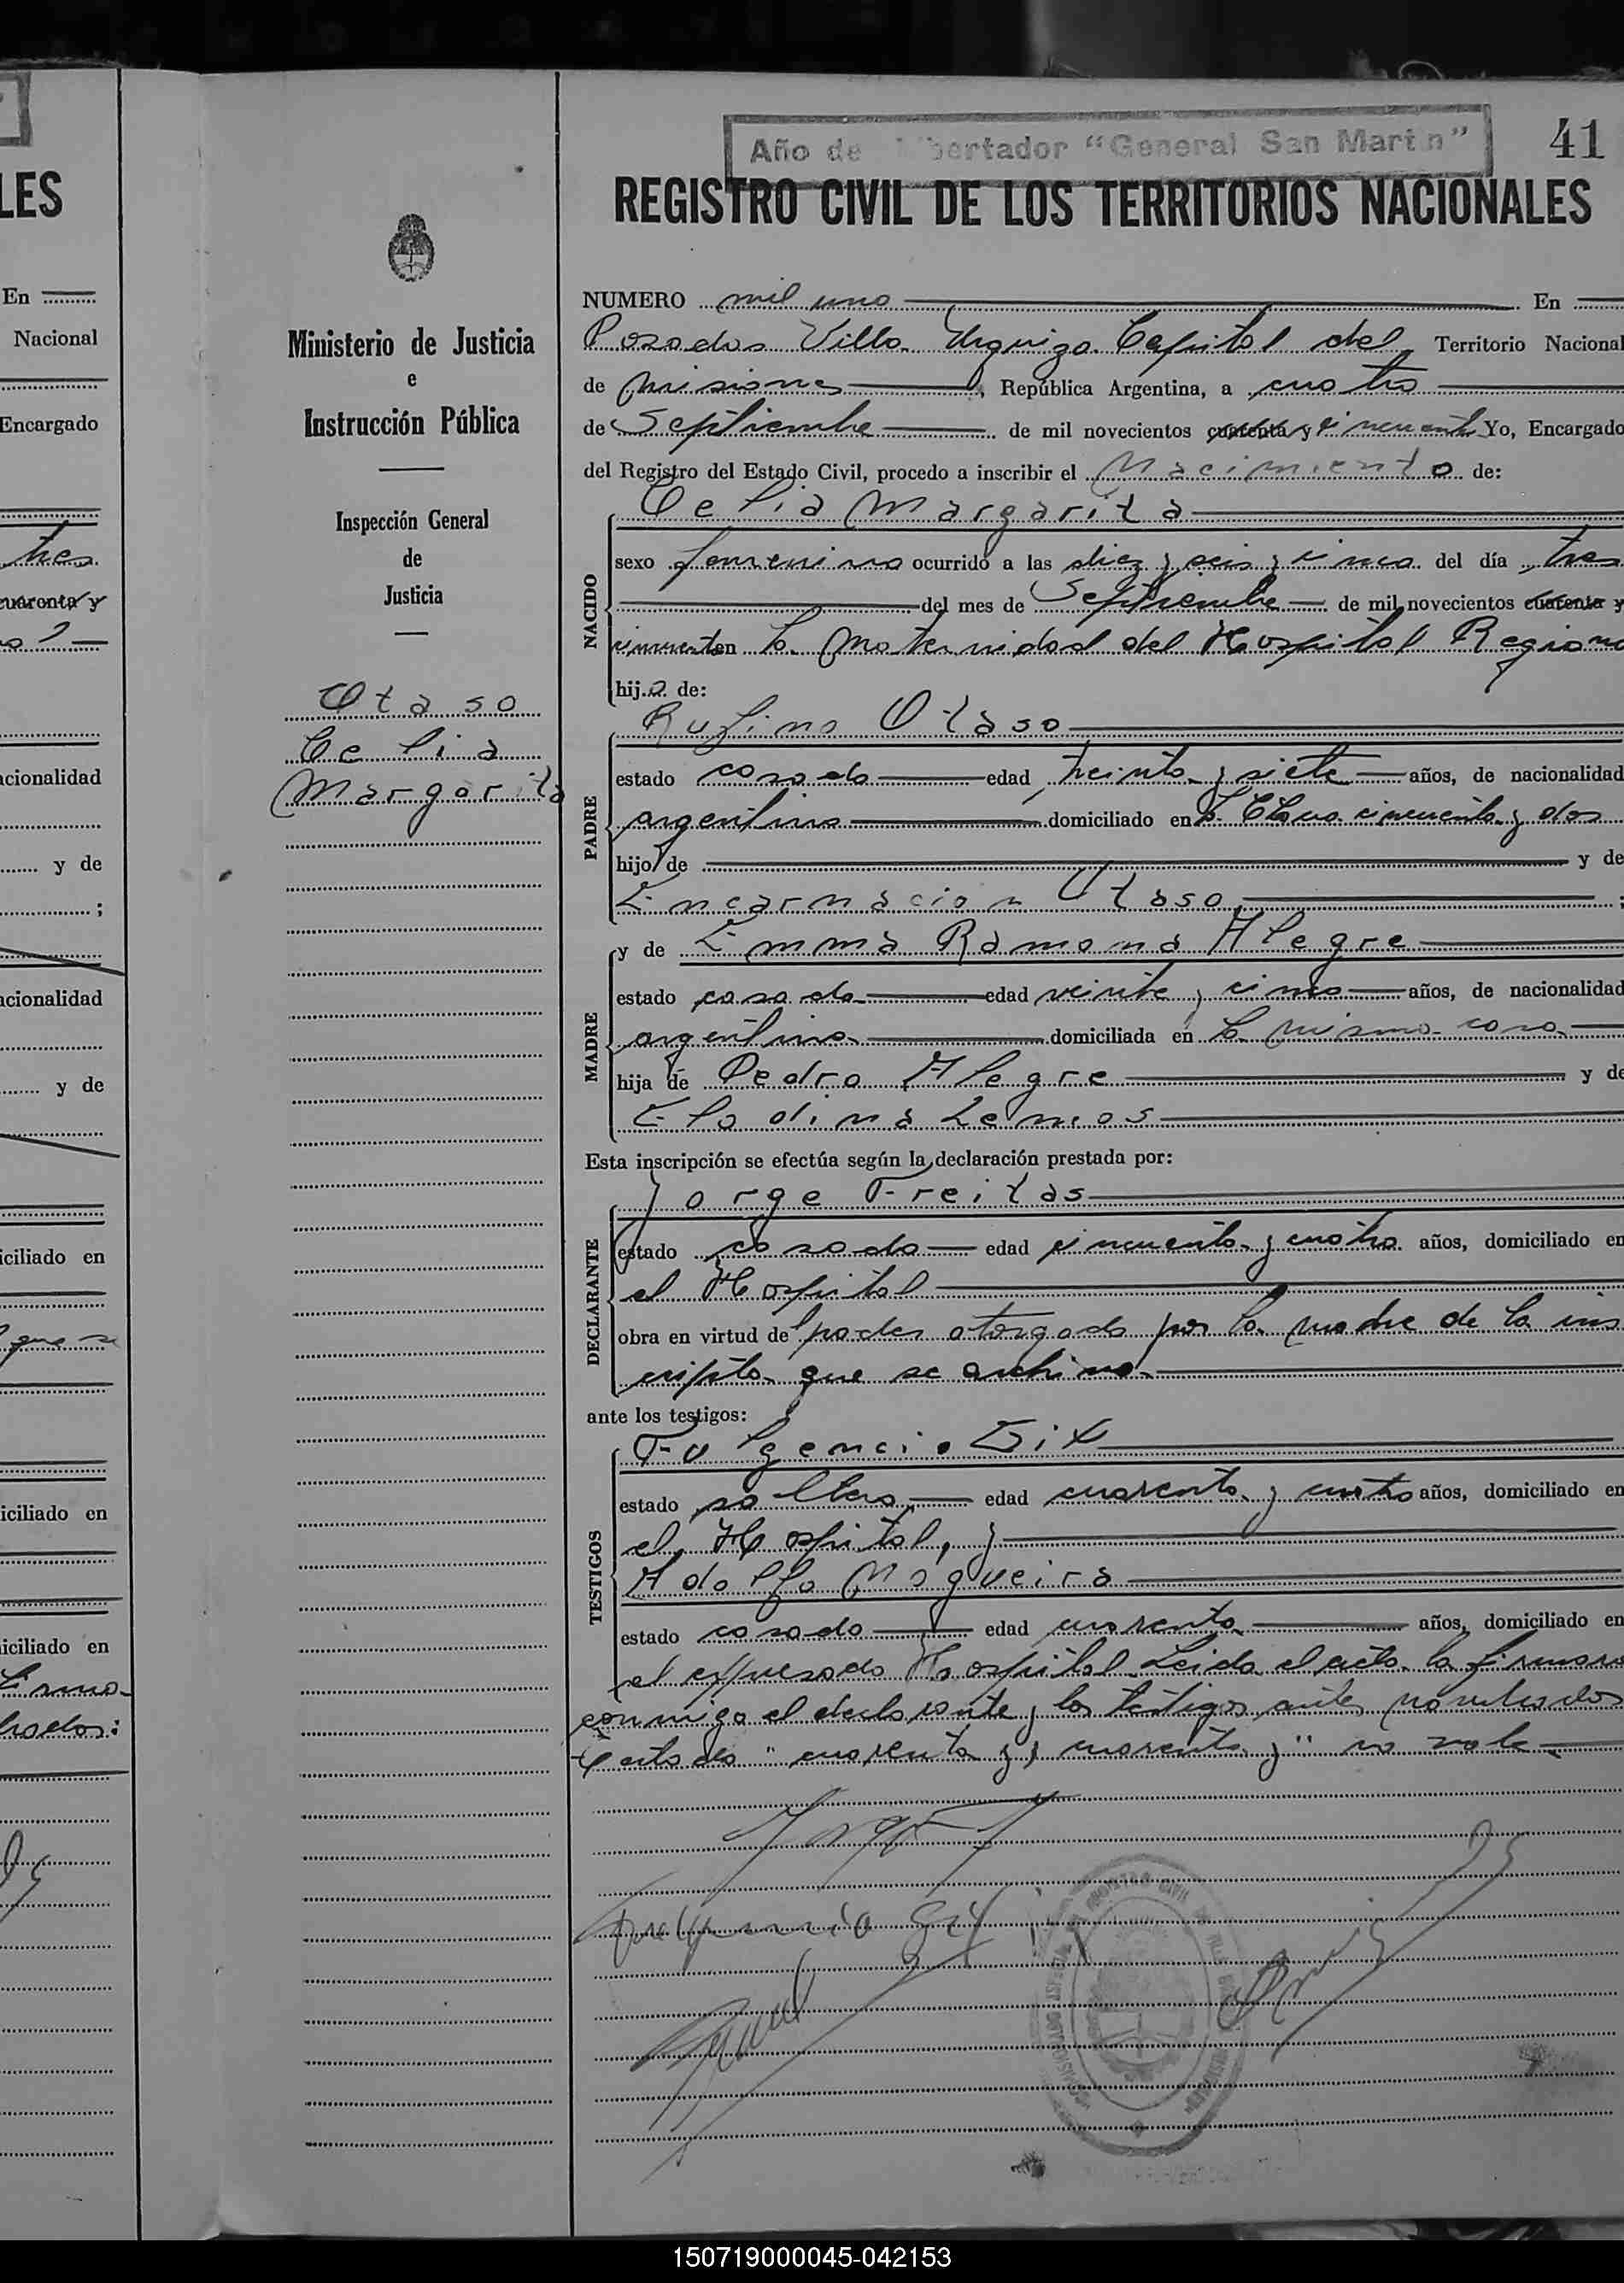 Año de Libertador "General San Martin"
41
REGISTRO CIVIL DE LOS TERRITORIOS NACIONALES
LES
En
Nacional
Encargado
tres
cuarenta y
acionalidad
y de
;
acionalidad
y de
iciliado en
que se
iciliado en
iciliado en
Ministerio de Justicia
e
Instrucción Pública
Inspección General
de
Justicia
Otaso
Celia
Margarita
NUMERO mil uno En
Posadas Villa Urquiza Capital del Territorio Nacional
de Misiones, República Argentina, a cuatro
de Septiembre de mil novecientos cuarenta y cincuenta Yo, Encargado
del Registro del Estado Civil, procedo a inscribir el Nacimiento de:
NACIDO
Celia Margarita
sexo femenino ocurrido a las diez y seis y cinco del día tres
del mes de Septiembre de mil novecientos cuarenta y
cincuenta en la Maternidad del Hospital Regional
hija de:
PADRE
Rufino Otaso
estado casado edad treinta y siete años, de nacionalidad
argentino domiciliado en la Chacra cincuenta y dos
hijo de y de
Encarnacion Otaso ;
MADRE
y de Emma Ramona Alegre
estado casada edad veinte y cinco años, de nacionalidad
argentina domiciliada en la misma casa
hija de Pedro Alegre y de
Elodina Lemos
Esta inscripción se efectúa según la declaración prestada por:
DECLARANTE
Jorge Freitas
estado casado edad cincuenta y cuatro años, domiciliado en
el Hospital
obra en virtud del poder otorgado por la madre de la ins
cripta que se archiva
ante los testigos:
TESTIGOS
Fulgencio Gil
estado soltero edad cuarenta y cuatro años, domiciliado en
el Hospital, y
Adolfo Nogueira
estado casado edad cuarenta años, domiciliado en
el expresado Hospital. Leida el acta la firmaro
conmigo el declarante y los testigos antes nombrados
Testado "cuarenta y, cuarenta y" no vale
150719000045-042153